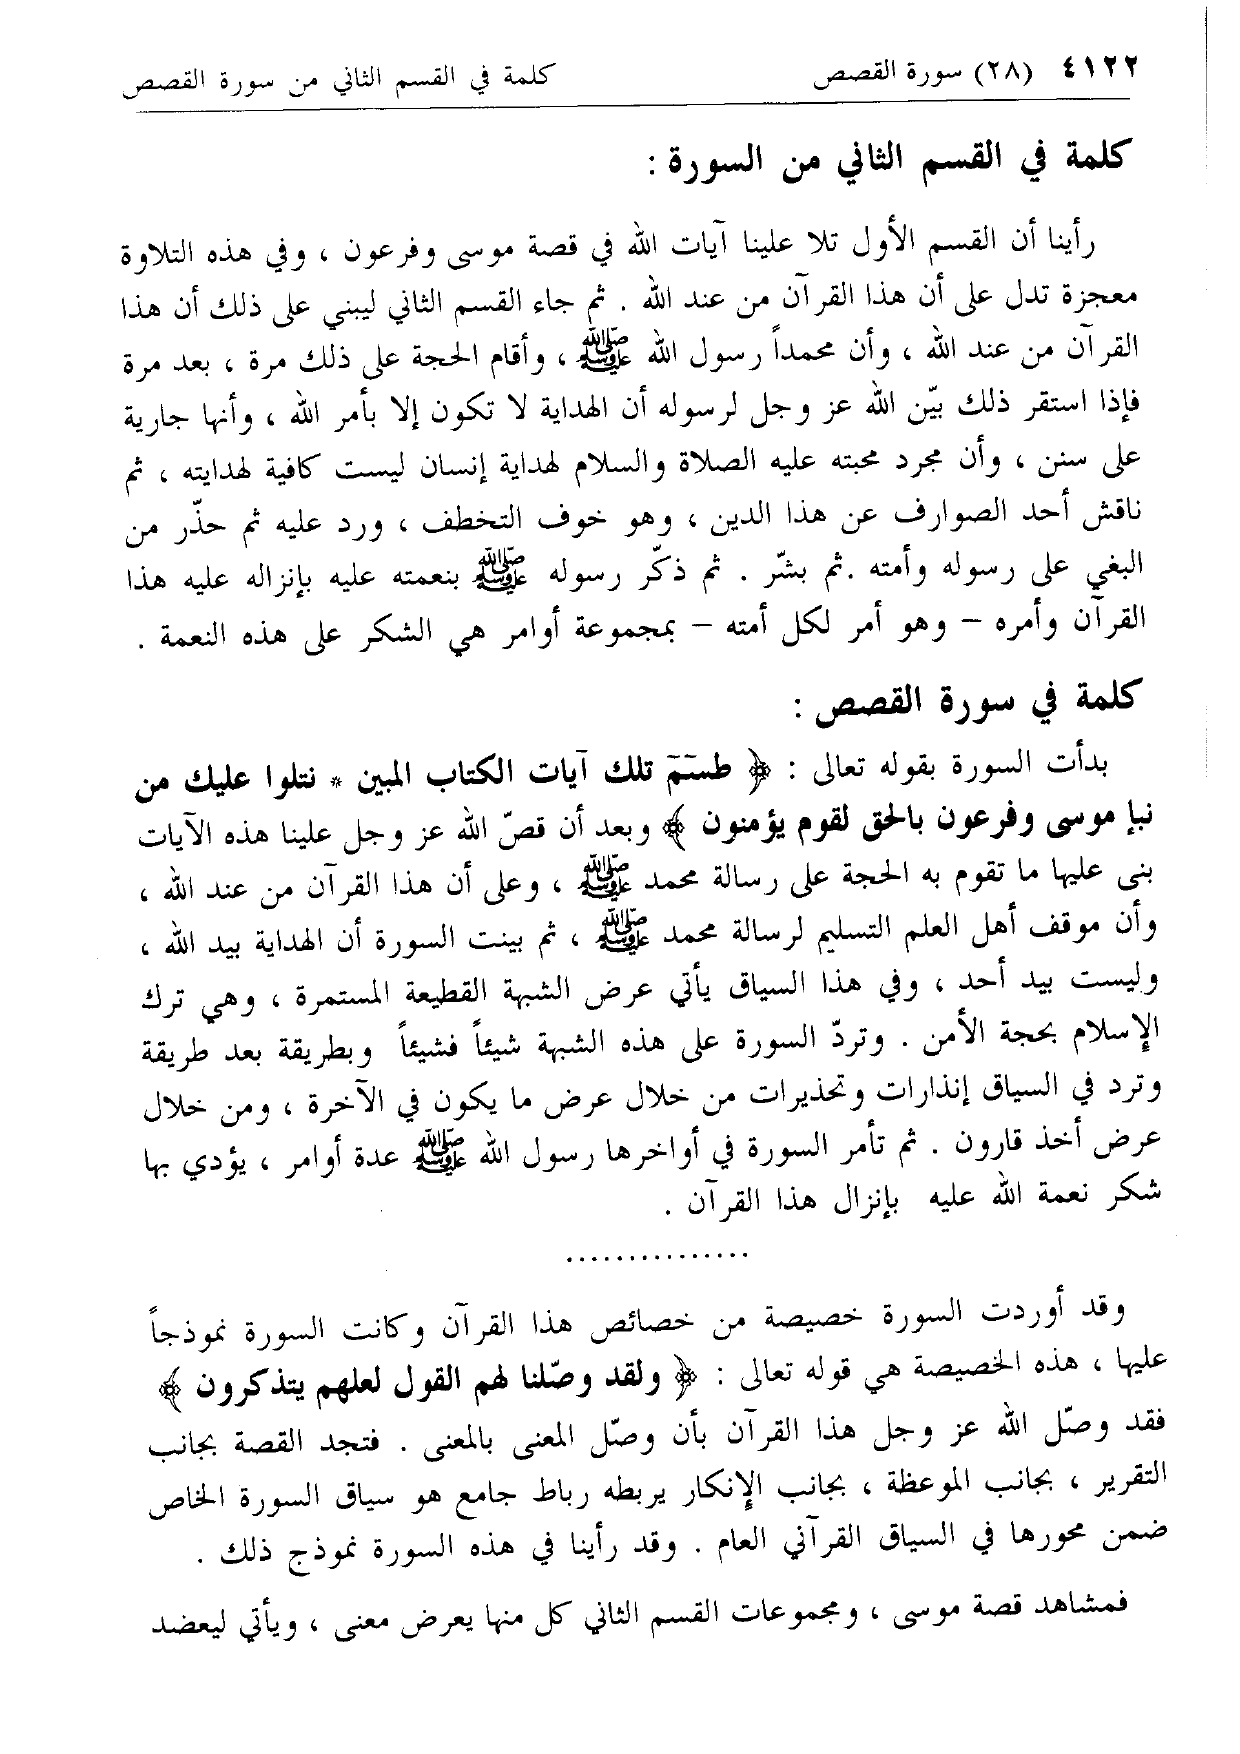 ٤١٢٢ (٢٨) سورة القصص كلمة في القسم الثاني من سورة القصص
كلمة في القسم الثاني من السورة :
رأينا أن القسم الأول تلا علينا آيات الله في قصة موسى وفرعون ، وفي هذه التلاوة
معجزة تدل على أن هذا القرآن من عند الله . ثم جاء القسم الثاني ليبني على ذلك أن هذا
القرآن من عند الله ، وأن محمداً رسول الله ﷺ ، وأقام الحجة على ذلك مرة ، بعد مرة
فإذا استقر ذلك بيّن الله عز وجل لرسوله أن الهداية لا تكون إلا بأمر الله ، وأنها جارية
على سنن ، وأن مجرد محبته عليه الصلاة والسلام لهداية إنسان ليست كافية لهدايته ، ثم
ناقش أحد الصوارف عن هذا الدين ، وهو خوف التخطف ، ورد عليه ثم حذّر من
البغي على رسوله وأمته .ثم بشّر . ثم ذكّر رسوله ﷺ بنعمته عليه بإنزاله عليه هذا
القرآن وأمره – وهو أمر لكل أمته – بمجموعة أوامر هي الشكر على هذه النعمة .
كلمة في سورة القصص :
بدأت السورة بقوله تعالى : ﴿ طسٓمٓ تلك آيات الكتاب المبين * نتلوا عليك من
نبإ موسى وفرعون بالحق لقوم يؤمنون ﴾ وبعد أن قصّ الله عز وجل علينا هذه الآيات
بنى عليها ما تقوم به الحجة على رسالة محمد ﷺ ، وعلى أن هذا القرآن من عند الله ،
وأن موقف أهل العلم التسليم لرسالة محمد ﷺ ، ثم بينت السورة أن الهداية بيد الله ،
وليست بيد أحد ، وفي هذا السياق يأتي عرض الشبهة القطيعة المستمرة ، وهي ترك
الإسلام بحجة الأمن . وتردّ السورة على هذه الشبهة شيئاً فشيئاً وبطريقة بعد طريقة
وترد في السياق إنذارات وتحذيرات من خلال عرض ما يكون في الآخرة ، ومن خلال
عرض أخذ قارون . ثم تأمر السورة في أواخرها رسول الله ﷺ عدة أوامر ، يؤدي بها
شكر نعمة الله عليه بإنزال هذا القرآن .
...............
وقد أوردت السورة خصيصة من خصائص هذا القرآن وكانت السورة نموذجاً
عليها ، هذه الخصيصة هي قوله تعالى : ﴿ ولقد وصّلنا لهم القول لعلهم يتذكرون ﴾
فقد وصّل الله عز وجل هذا القرآن بأن وصّل المعنى بالمعنى . فتجد القصة بجانب
التقرير ، بجانب الموعظة ، بجانب الإنكار يربطه رباط جامع هو سياق السورة الخاص
ضمن محورها في السياق القرآني العام . وقد رأينا في هذه السورة نموذج ذلك .
فمشاهد قصة موسى ، ومجموعات القسم الثاني كل منها يعرض معنى ، ويأتي ليعضد